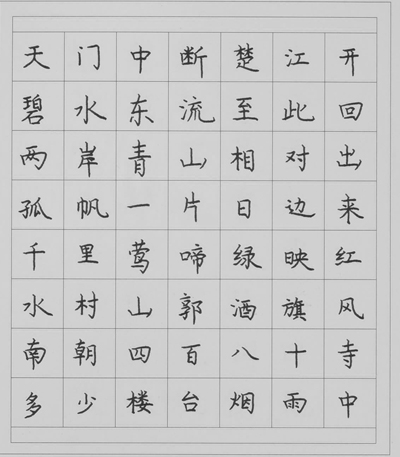 天门中断楚江开
碧水东流至此回
两岸青山相对出
孤帆一片日边来
千里莺啼绿映红
水村山郭酒旗风
南朝四百八十寺
多少楼台烟雨中